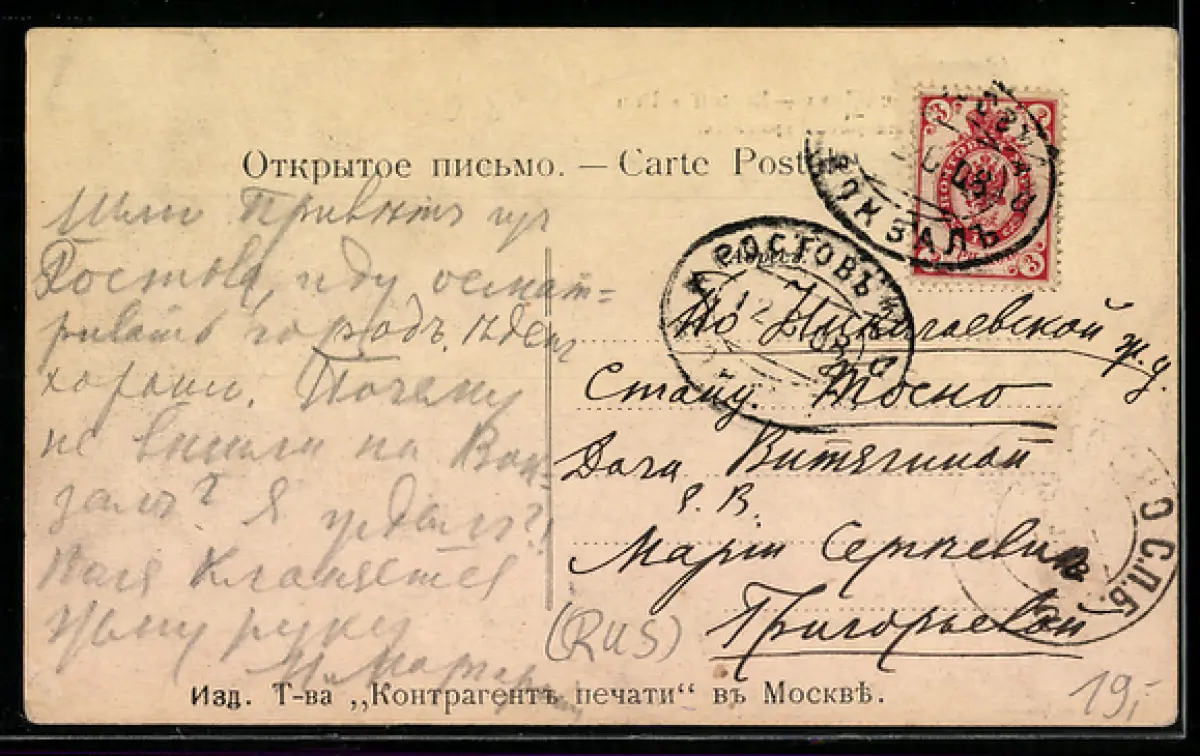 Открытое письмо. — Carte Postale
Шлю Привѣтъ изъ
Ростова, иду осмат-
ривать городъ. Здесь
хорошо. Почему
не вышли на Вок-
залъ? Я ждалъ?!
Коля Кланяется
Цѣлую руку
ВОКЗАЛЪ
08
3
3
РОСТОВЪ
12
08
По Николаевской ж. д.
Станц. Тосно
Дача
Е. В.
Маріи Сергѣевнѣ
Григорьевой
С.П.Б.
(RUS)
19,-
Изд. Т-ва „Контрагентъ печати“ въ Москвѣ.